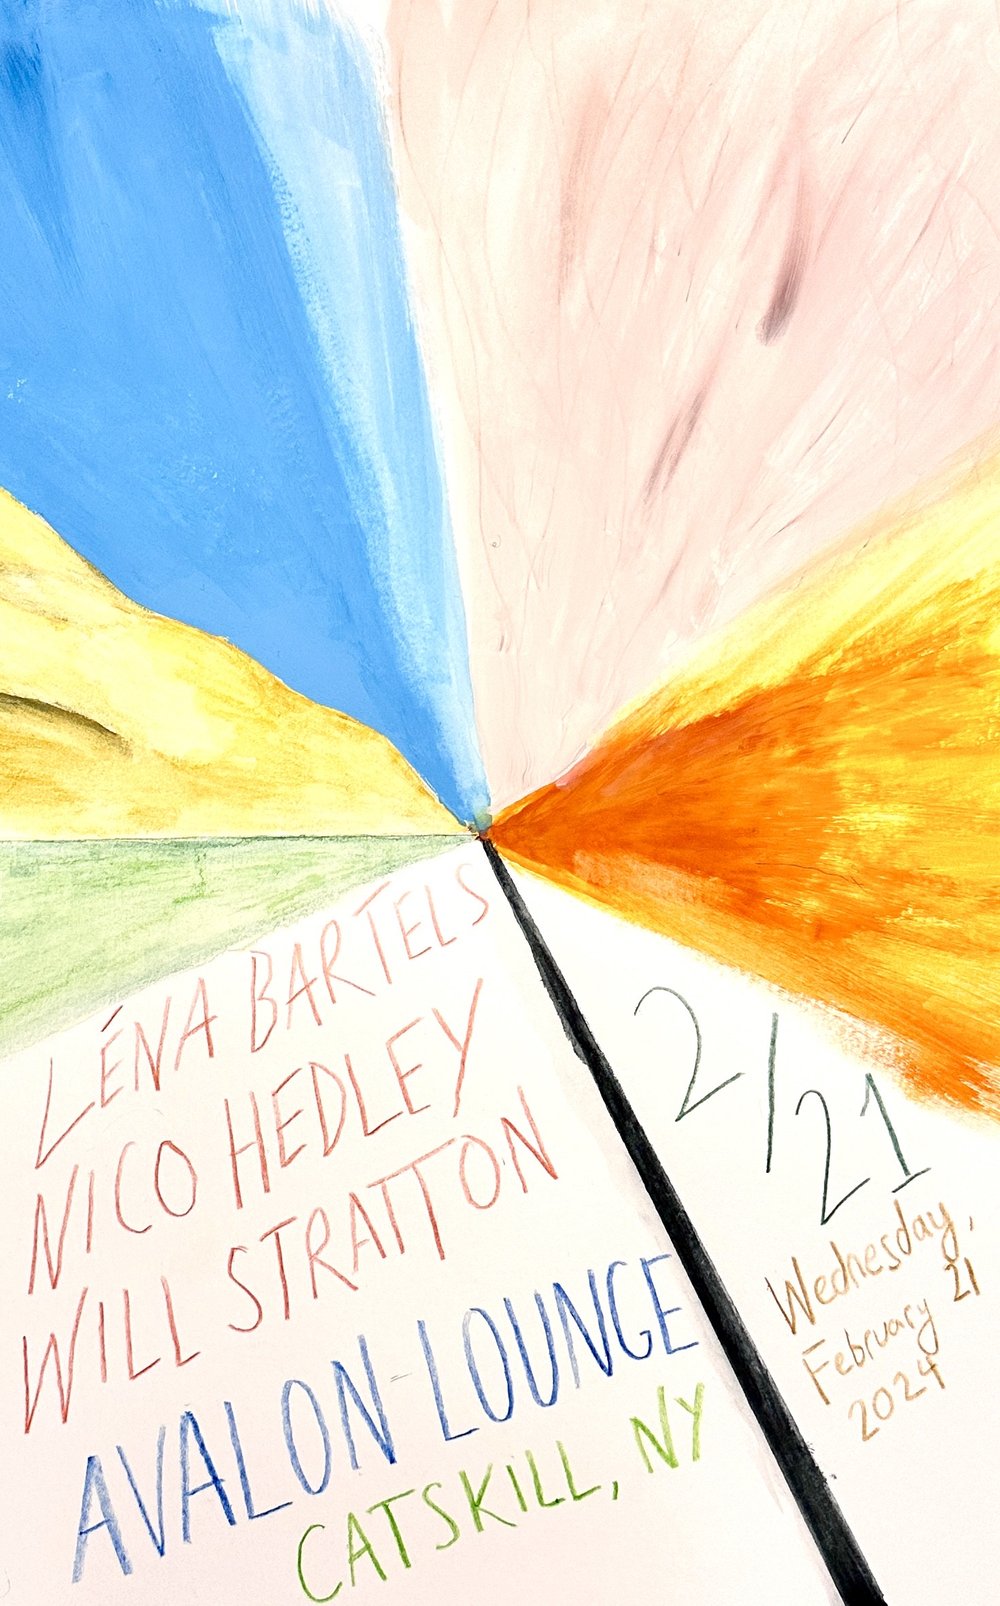 LÉNA BARTELS
NICO HEDLEY
WILL STRATTON
AVALON LOUNGE
CATSKILL, NY
2/21
Wednesday,
February 21
2024